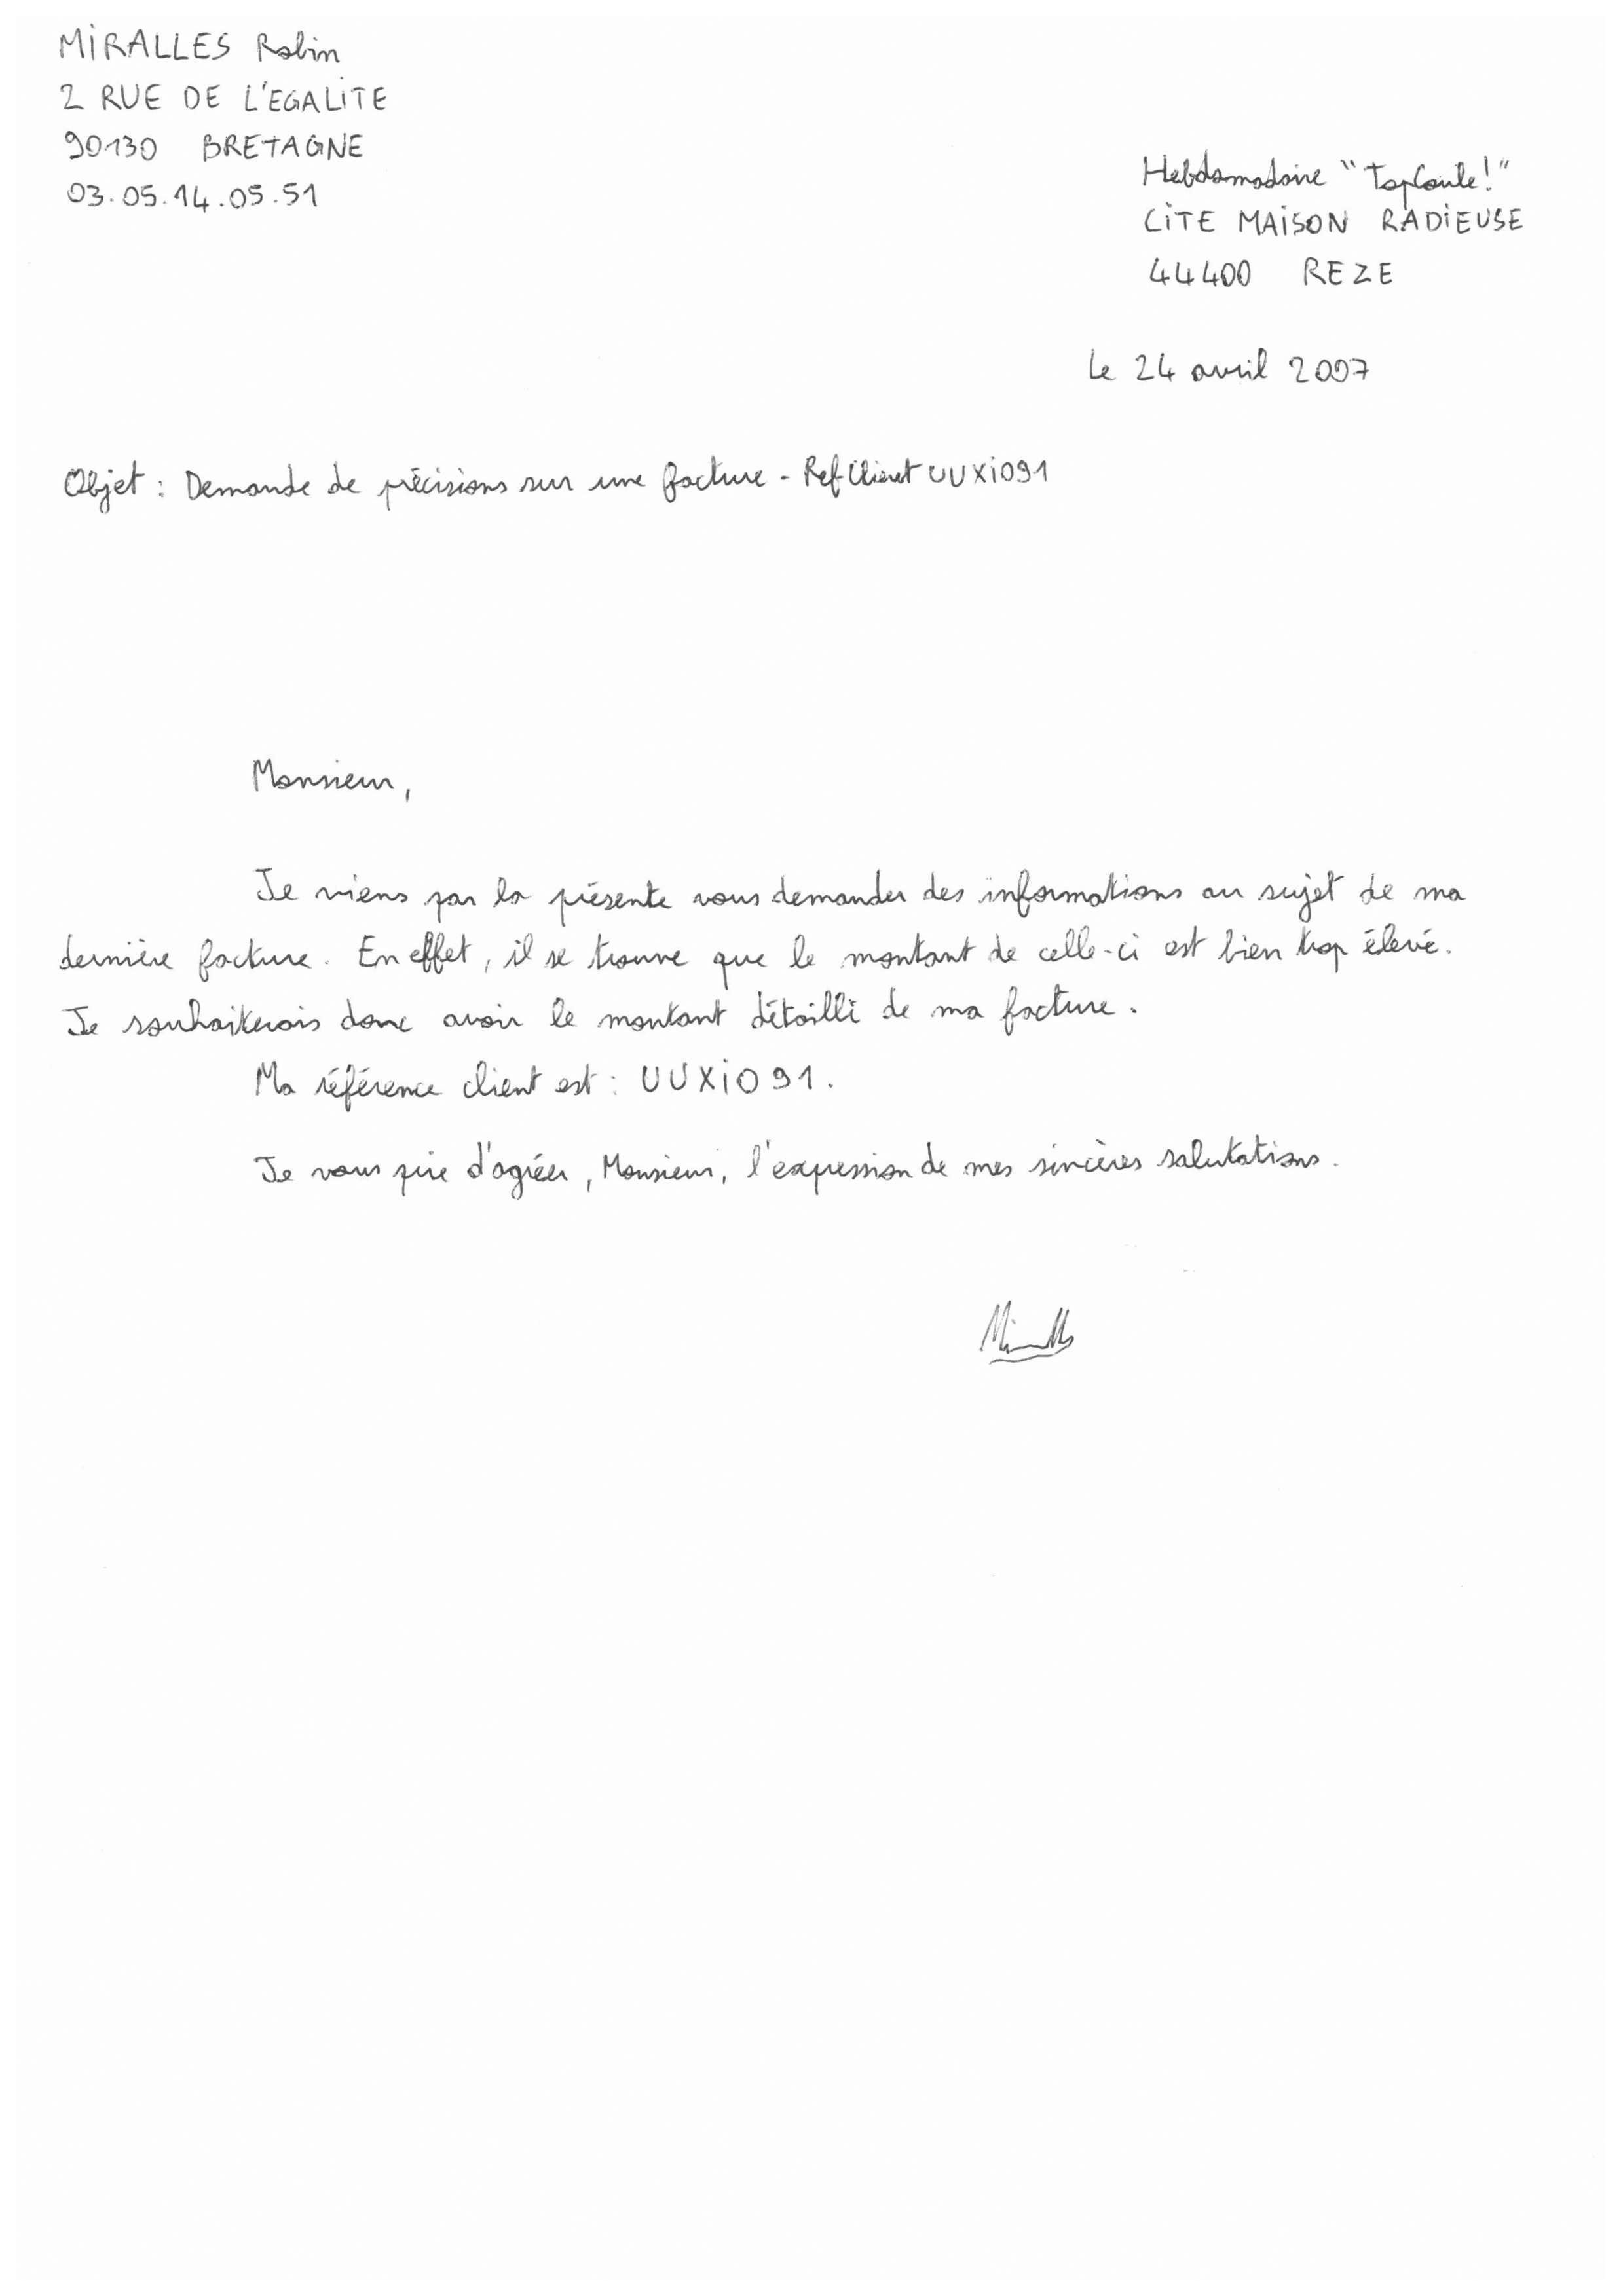 MIRALLES Robin
2 RUE DE L'EGALITE
90130 BRETAGNE
03.05.14.05.51
Hebdomadaire "TopCoule!"
CITE MAISON RADIEUSE
44400 REZE
Le 24 avril 2007
Objet : Demande de précisions sur une facture - Ref Client UUXI091
Monsieur,
Je viens par la présente vous demander des informations au sujet de ma
dernière facture. En effet, il se trouve que le montant de celle-ci est bien trop élevé.
Je souhaiterais donc avoir le montant détaillé de ma facture.
Ma référence client est : UUXI091.
Je vous prie d'agréer, Monsieur, l'expression de mes sincères salutations.